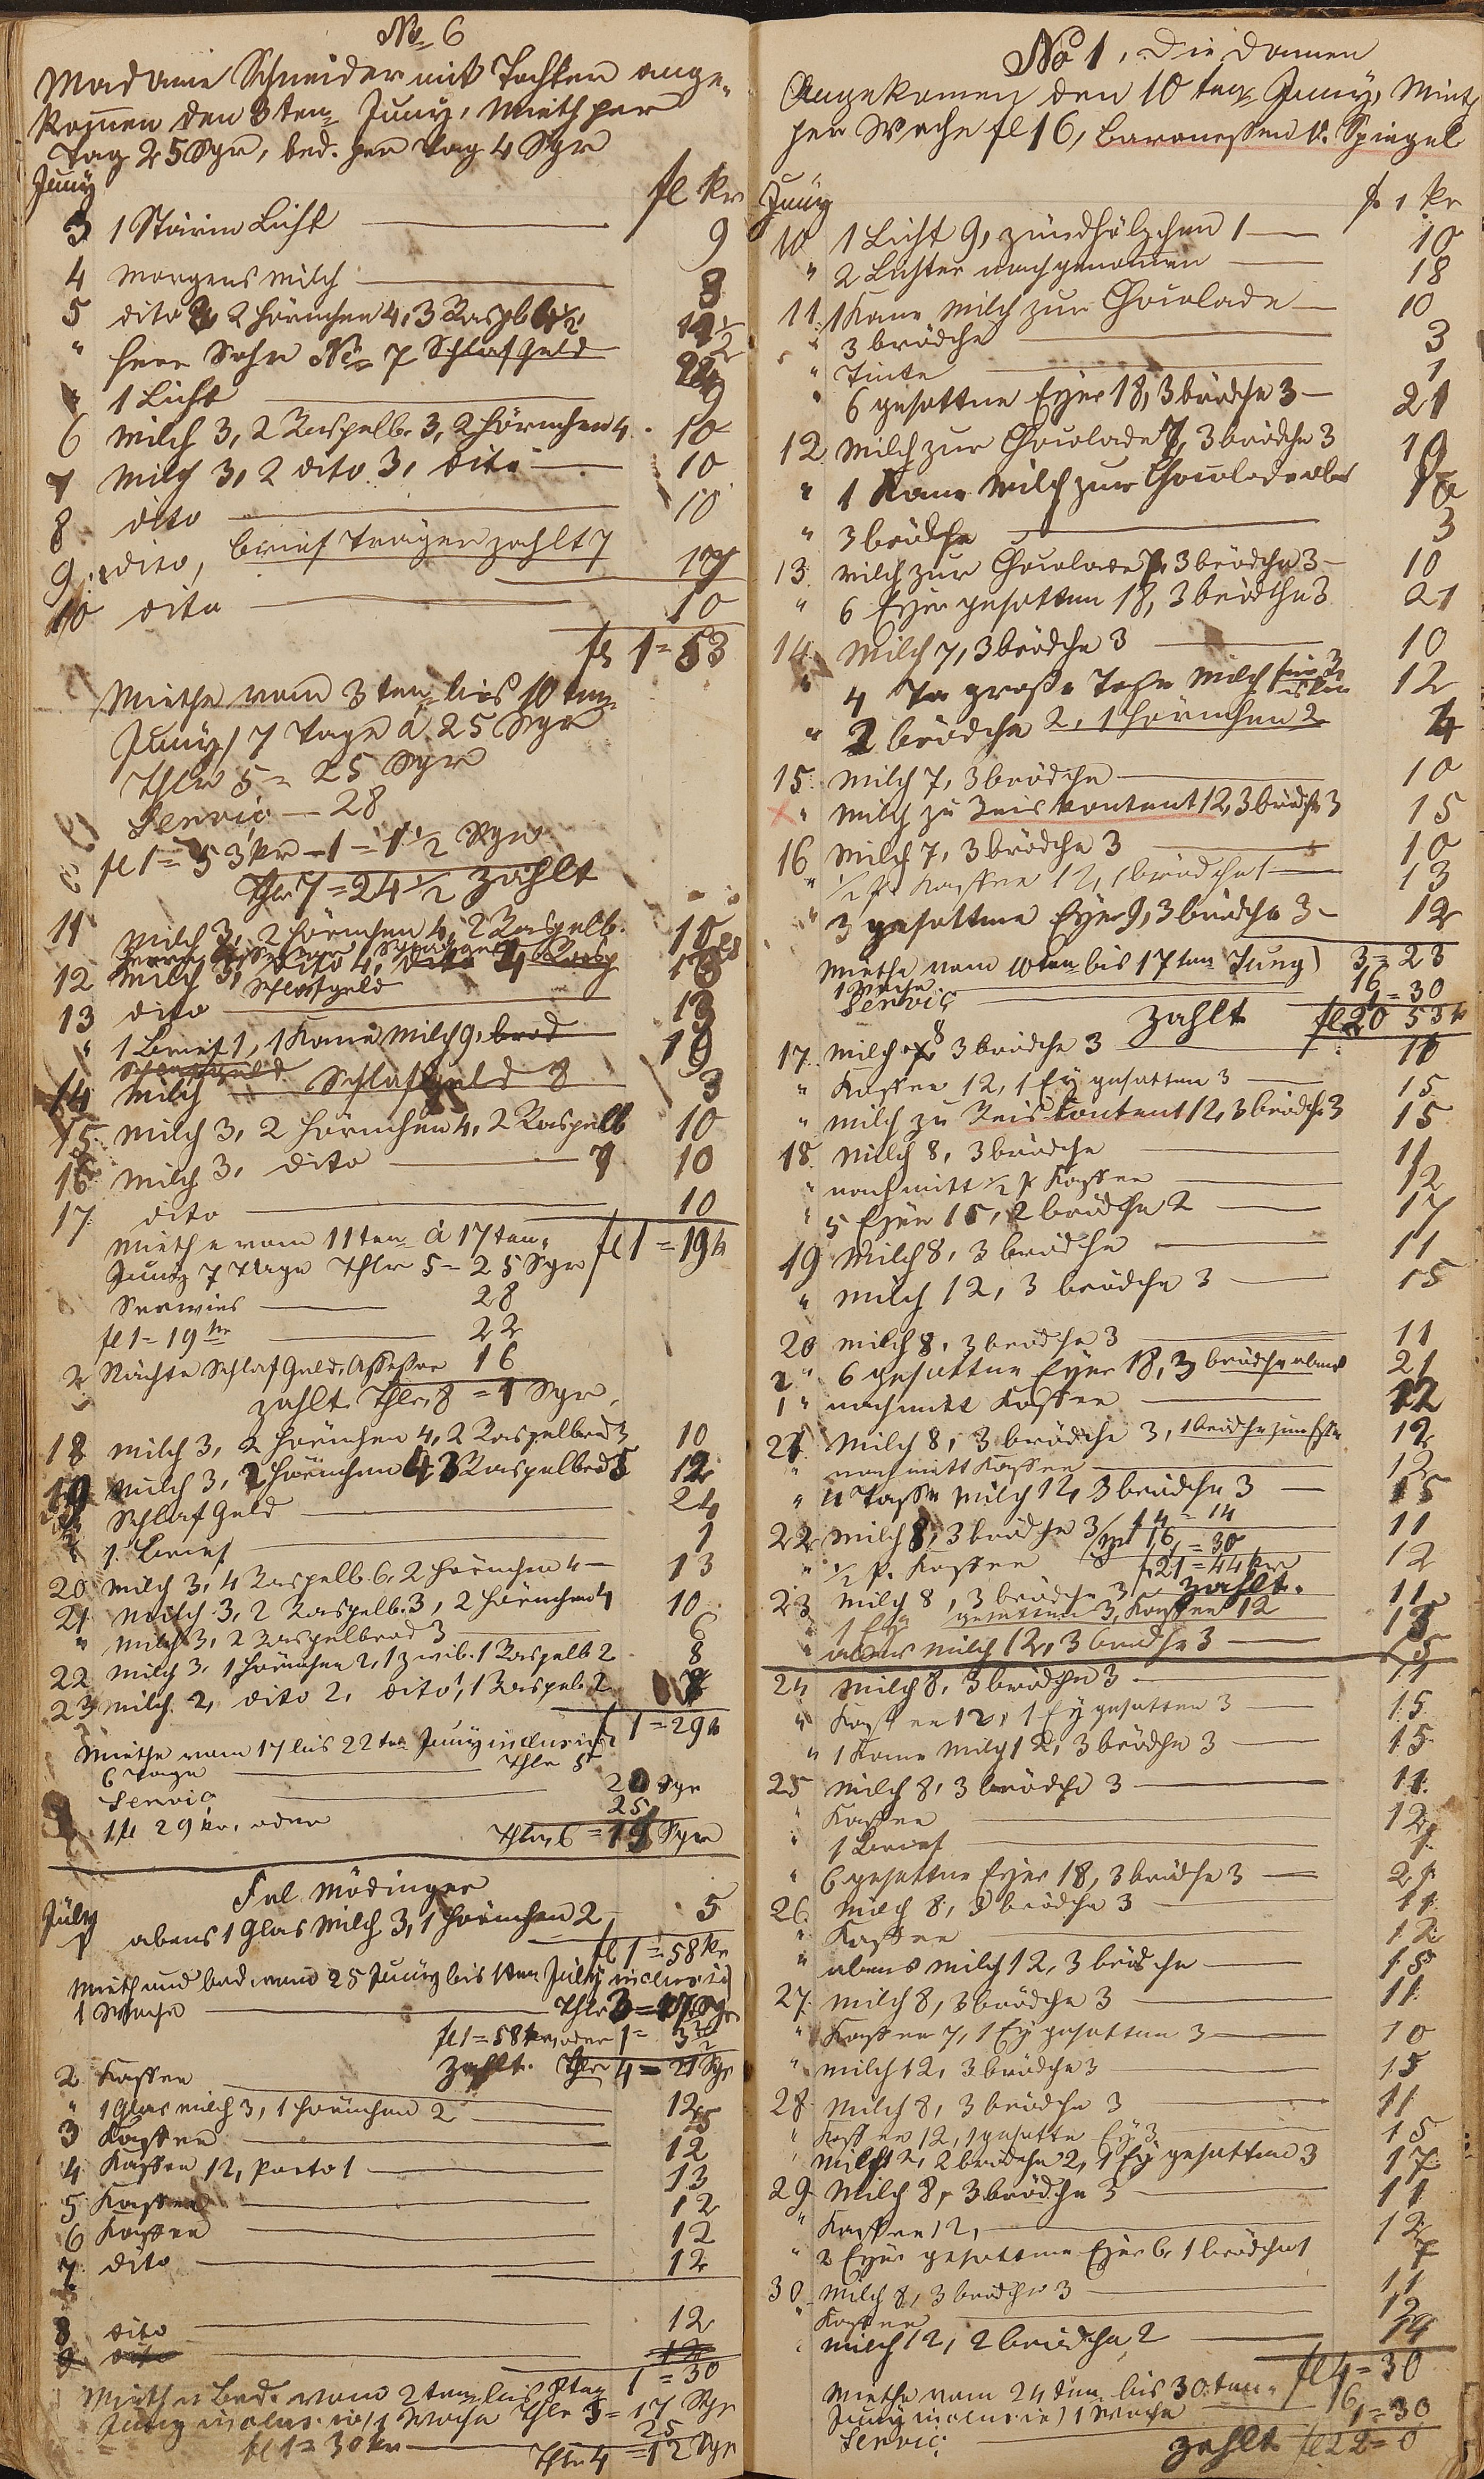 No 6
Madame Schneider mit Tochter ange-
kom̄en den 3ten Juny, Mieth per
Tag 25 Sgr, bed. per Tag 4 Sgr
Juny fl kr
3 1 Stärin Licht 9
4 Morgens Milch 3
5 dito 3, 2 Hörnchen 4, 3 Raspb 4½ 11½
" Herr Sohn No 7 Schlafgeld 24
" 1 Licht 9
6 Milch 3, 2 Raspelb. 3, 2 Hörnchen 4 10
7 Milch 3, 2 dito 3, dito 10
8 dito 10
9 dito, briefträger zahlt 7 17
10 dito 10
fl 1 = 53
Miethe vom 3ten bis 10ten
Juny, 7 Tage a 25 Sgr
Thlr 5 = 25 Sgr
Servic — 28
fl 1 = 53 kr — 1 = 1½ Sgr
Thlr 7 = 24½ zahlt
11 Milch 3, 2 Hörnchen 4, 2 Raspelb. 10
12 Milch 3, dito 4, dito 4 Rasp
Schlafgeld
13 dito 13
" 1 Brief 1, 1 Kane Milch 9, brod 10
14 Milch Schlafgeld 8 3
15 Milch 3, 2 Hörnchen 4, 2 Raspelb 10
16 Milch 3, dito 10
17 dito 10
Miethe vom 11ten á 17ten fl 1 = 19 k
Juny 7 Tage Thlr 5 = 25 Sgr
Servies 28
fl 1 = 19 kr 22
2 Nächte Schlafgeld, Assessor 16
zahlt Thlr 8 = 1 Sgr.
18 Milch 3, 2 Hörnchen 4, 2 Raspelbrod 3 10
19 Milch 3, 2 Hörnchen 4, 3 Raspelbrod 5 12
" Schlafgeld 24
" 1 Brief 1
20 Milch 3, 4 Raspelb. 6, 2 Hörnchen 4 13
21 Milch 3, 2 Raspelb. 3, 2 Hörnchen 4 10
" Milch 3, 2 Raspelbrod 3 6
22 Milch 3, 1 Hörnchen 2, 1 zwib. 1 Raspelb 2 8
23 Milch 2, dito 2, dito 1, 1 Raspelb 2
fl 1 = 29 k
Miethe vom 17 bis 22ten Juny inclusive
6 Tage Thlr 5
Servic 20 Sgr
1 fl 29 kr, oder 25
Thlr 6 = 19 Sgr
Frl Mödinger
July
1 abens 1 Glas Milch 3, 1 Hörnchen 2 5
fl 1 = 58 kr
Mieth und bed. vom 25 Juny bis 1ten July inclusive
1 Woche Thlr 3 = 17 Sgr
fl 1 = 58 kr, oder 1 = 3½
zahlt. Thlr 4 = 21 Sgr
2 Kaffee 12
" 1 Glas Milch 3, 1 Hörnchen 2 5
3 Kaffee 12
4 Kaffee 12, Porto 1 13
5 Kaffee 12
6 Kaffee 12
7 dito 12
8 dito 12
9 dito 12
1 = 30
Mieth u bed. vom 2ten bis 8tag
Juny inclusive, 1 Woche Thlr 3 = 17 Sgr
fl 1 = 30 kr 25
Thlr 4 = 12 Sgr
No 1, Die Damen
Angekomen den 10ten Juny, Mieth
per Woche fl 16, Baronessen v. Spiegel
Juny fl kr
10 1 Licht 9, zündhölzchen 1 10
" 2 Lichter nachgenom̄en 18
11 1 Kane Milch zur Choculade 10
" 3 brödche 3
" Tinte 1
" 6 gesottne Eyer 18, 3 brödche 3 21
12 Milch zur Choculade 7, 3 brödche 3 10
" 1 Kane Milch zur Choculade abs 10
" 3 brödche 3
13 Milch zur Choculade 7, 3 brödche 3 10
" 6 Eyer gesotten 18, 3 brödche 3 21
14 Milch 7, 3 brödche 3 10
" 4 große Tasse Milch 12
" 2 brödche 2, 1 Hörnchen 2 4
15 Milch 7, 3 brödche 10
" Milch zu Reis kontent 12, 3 brödch 3 15
16 Milch 7, 3 brödche 3 10
" ½ P. Kaffee 12, 1 brödche 1 13
" 3 gesottne Eyer 9, 3 brödche 3 12
Miethe vom 10ten bis 17ten Juny 3 = 23
1 Woche 16
Servic 1 = 30
zahlt fl 20 53 k
17 Milch 8 3 brödche 3 11
" Kaffee 12, 1 Ey gesotten 3 15
" Milch zu Reis kontent 12, 3 brödche 3 15
18 Milch 8, 3 brödche 11
" nachmitt ½ P Kaffee 12
" 5 Eyer 15, 2 brödche 2 17
19 Milch 8, 3 brödche 11
" Milch 12, 3 brödche 3 15
20 Milch 8, 3 brödche 3 11
" 6 gesottne Eyer 18, 3 brödche abens 21
" nachmitt Kaffee 12
21 Milch 8, 3 brödche 3, 1 brödche zum 12
" nachmitt Kaffee 12
" 4 Tasse Milch 12, 3 brödche 3 15
22 Milch 8, 3 brödche 3 14 = 14 11
" ½ P. Kaffee 16, 1 = 30 12
fl 21 = 44 kr
23 Milch 8, 3 brödche 3 zahlt. 11
" 1 Ey gesotten 3, Kaffee 12 15
" abens Milch 12, 3 brödche 3 15
24 Milch 8, 3 brödche 3 11
" Kaffee 12, 1 Ey gesotten 3 15
" 1 Kane Milch 12, 3 brödche 3 15
25 Milch 8, 3 brödche 3 11
" Kaffee 12
" 1 Brief 1
" 6 gesottne Eyer 18, 3 brödche 3 21
26 Milch 8, 3 brödche 3 11
" Kaffee 12
" abens Milch 12, 3 brödche 15
27 Milch 8, 3 brödche 3 11
" Kaffee 7, 1 Ey gesotten 3 10
" Milch 12, 3 brödche 3 15
28 Milch 8, 3 brödche 3 11
" Kaffee 12, 1 gesotte Ey 3 15
" Milch 12, 2 brödche 2, 1 Ey gesotten 3 17
29 Milch 8, 3 brödche 3 11
" Kaffee 12, 12
" 2 Eyer gesottne Eyer 6, 1 brödche 1 7
30 Milch 8, 3 brödche 3 11
" Kaffee 12
" Milch 12, 2 brödche 2 14
fl 4 = 30
Miethe vom 24ten bis 30ten
Juny inclusive, 1 Woche 16
Servic 1 = 30
zahlt fl 22 = 0